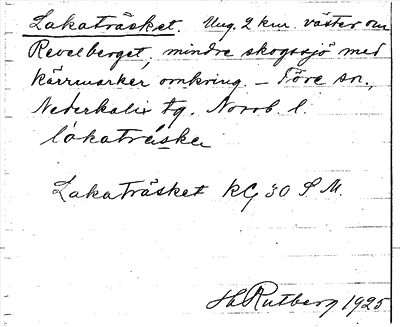 Lakaträsket. Ung. 2 km. väster om
Revelberget, mindre skogssjö med
kärrmarker omkring. – Töre sn.,
Nederkalix tg. Norrb. l.
lakaträske
Lakaträsket kG 30 S M.
Rutberg 1925